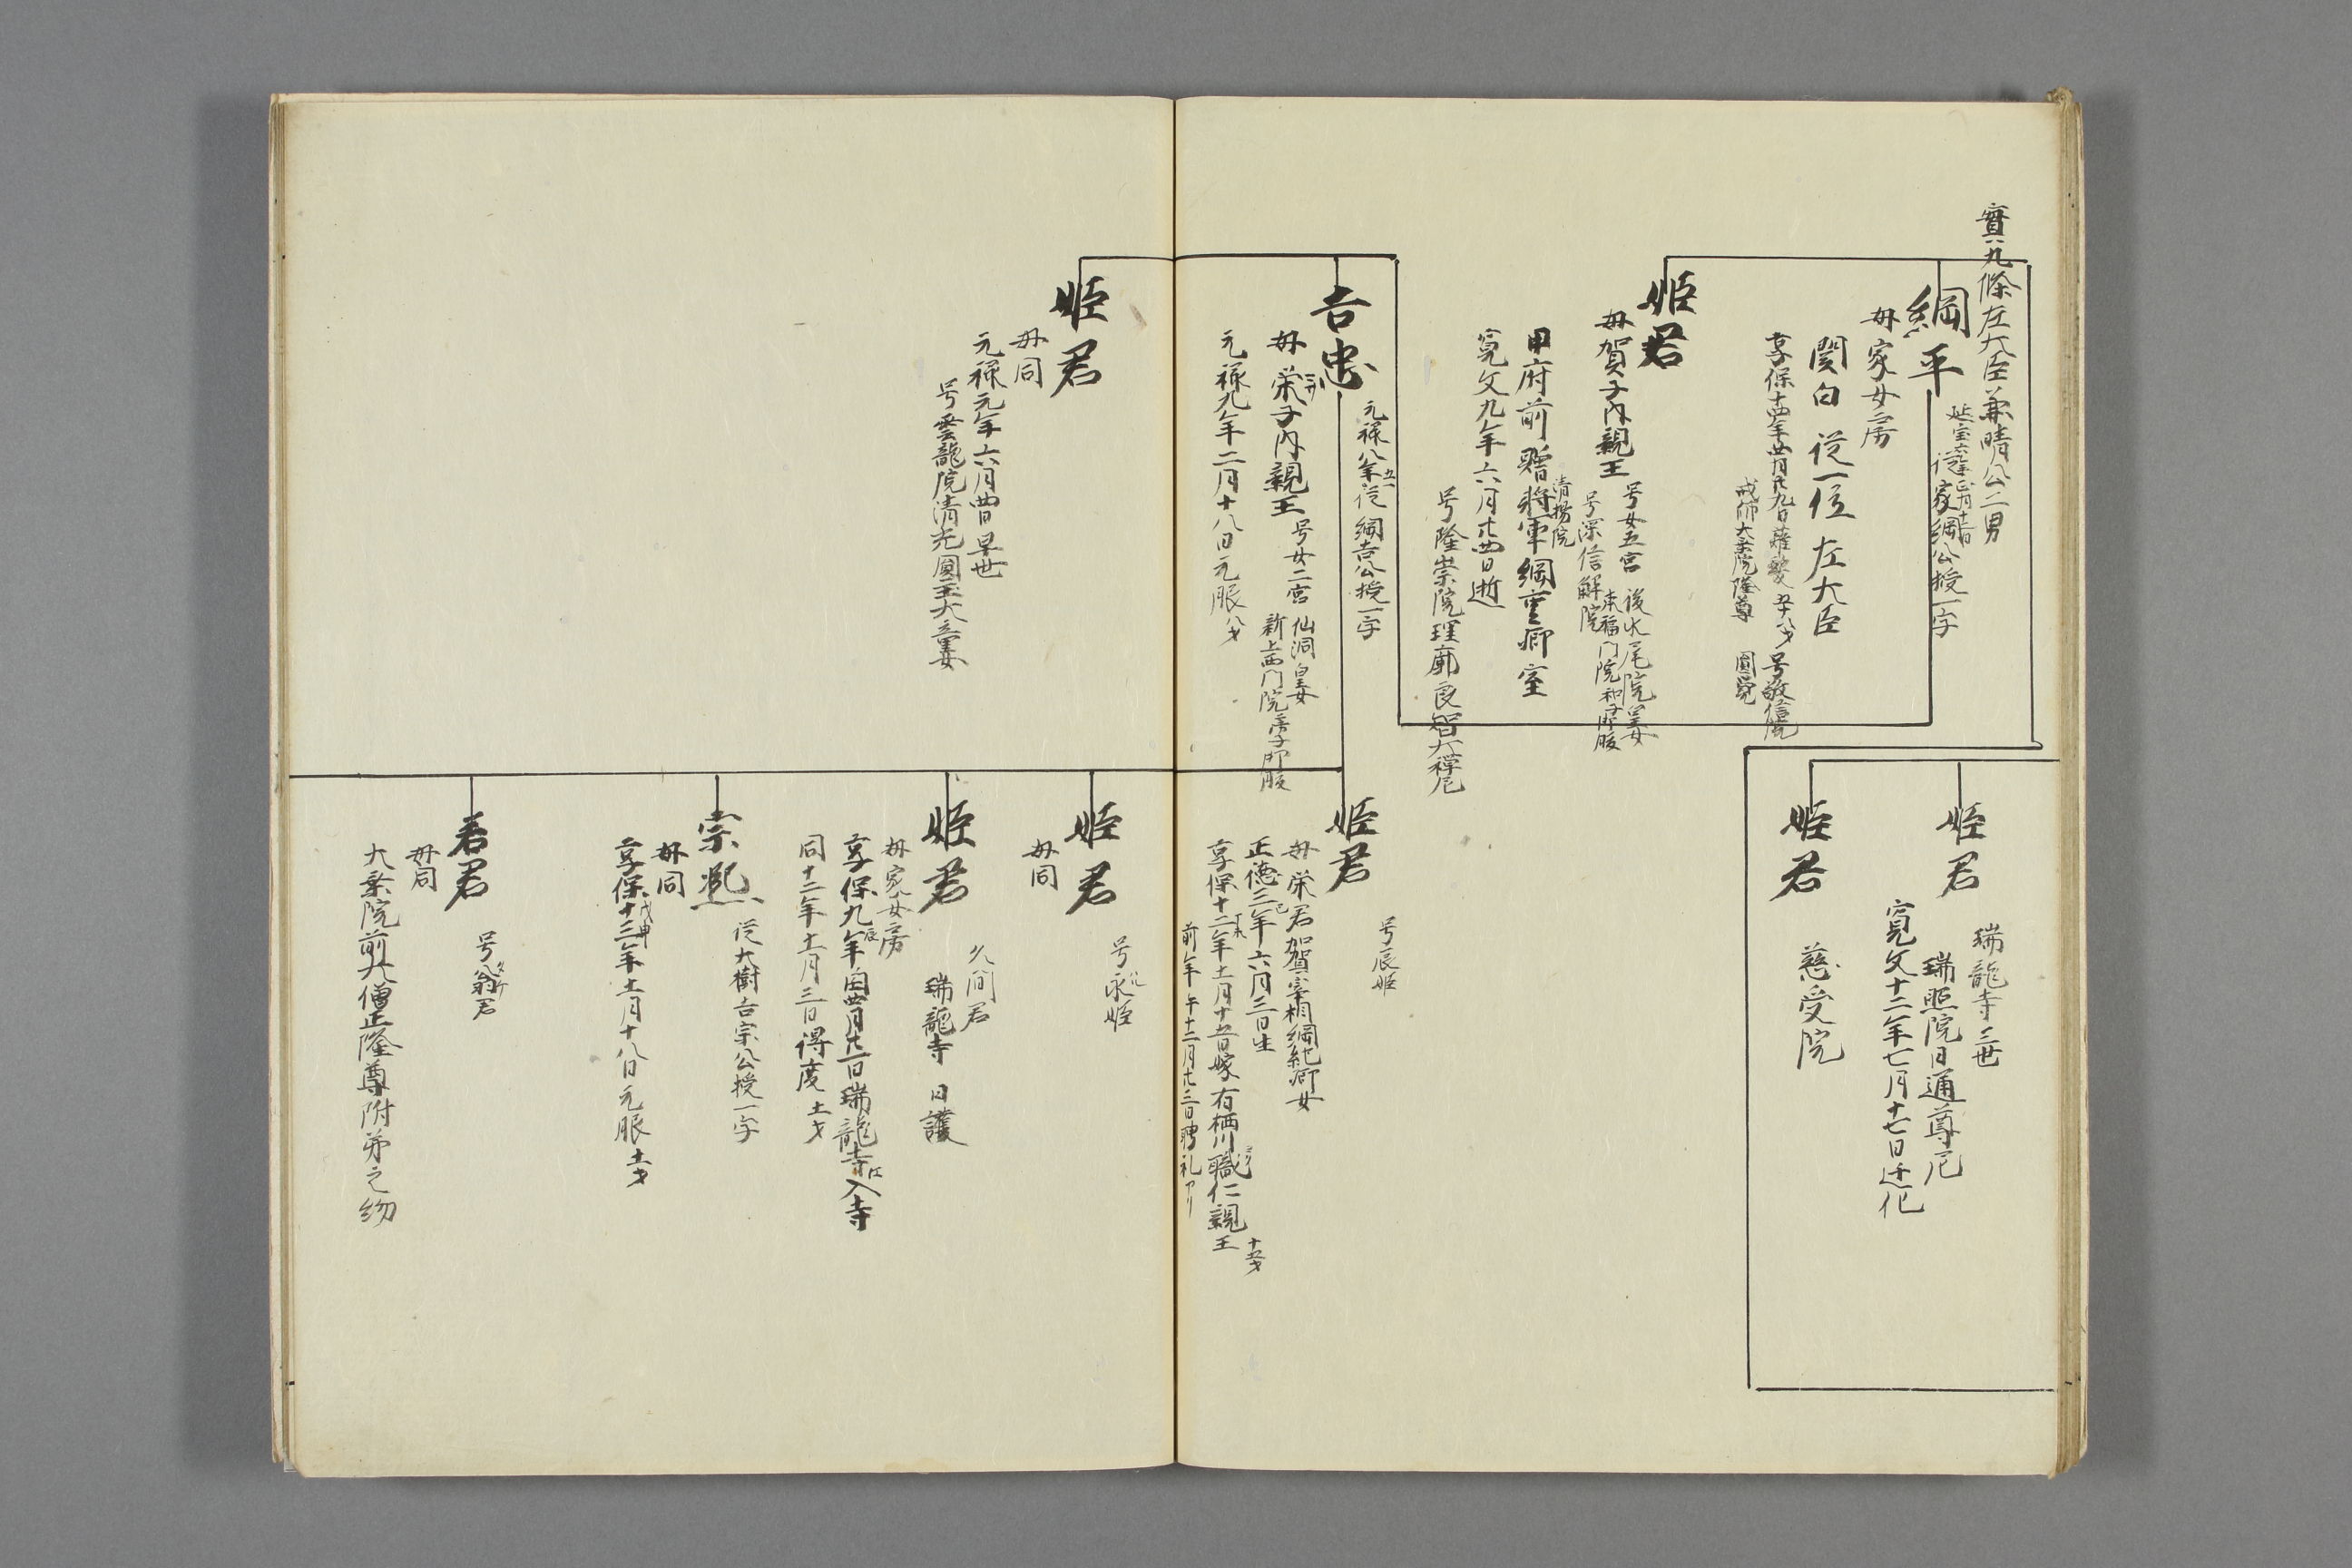 實九條左大臣兼晴公二男
綱平
延宝六年正月十二日
従家綱公授一字
母家女房
関白 従一位 左大臣
号敬信院
戒師大乗院隆尊
圓覚
姫君
母賀子内親王
号女五宮
後水尾院皇女
号深信解院
東福門院和子御腹
清揚院
甲府前贈将軍綱重卿室
寛文九年六月廿四日逝
号隆崇院理廓良智大禅尼
吉忠
元禄八年従綱吉公授一字
母栄子内親王
号女二宮
仙洞皇女
新上西門院房子御腹
元禄九年二月十八日元服 八才
姫君
母同
元禄元年六月四日早世
号雲龍院清光圓玉大童女
姫君
瑞龍寺三世
瑞照院日通尊尼
寛文十二年七月十七日迁化
姫君
慈受院
姫君
号辰姫
母栄君 加賀宰相綱紀卿女
正徳三年巳六月三日生
享保十二年丁未十一月十五日嫁有栖川職仁親王 十五才
前年午十二月廿三日聘礼アリ
姫君
号永姫
母同
姫君
久間君
瑞龍寺 日護
母家女房
享保九年辰閏四月廿一日瑞龍寺江入寺
同十二年十一月三日得度 十一才
宗熙
従大樹吉宗公授一字
母同
享保十三年戊申十一月十八日元服 十一才
君君
号翁君
母同
大乗院前大僧正隆尊附弟之約